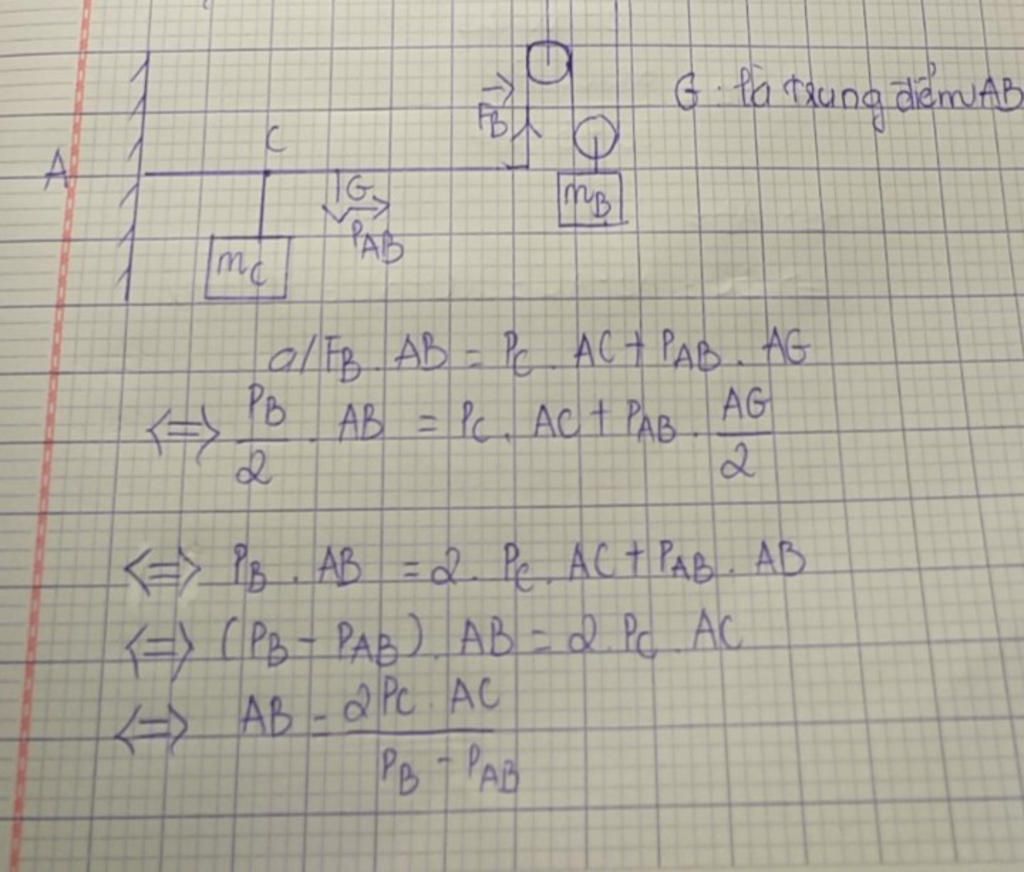 G là trung điểm AB
F⃗B
A
C
G
P⃗AB
mB
mC
a/ FB . AB = PC . AC + PAB . AG
<=> PB/2 . AB = PC . AC + PAB . AG/2
<=> PB . AB = 2 . PC . AC + PAB . AB
<=> (PB - PAB) . AB = 2 . PC . AC
<=> AB = 2PC . AC / PB - PAB